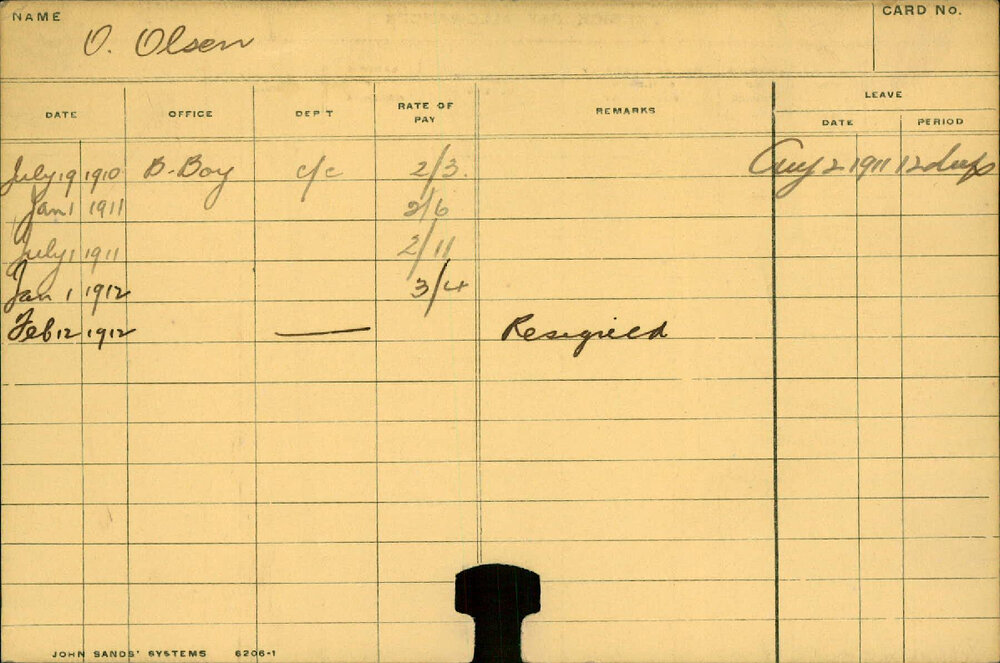 NAME O. Olsen CARD No.
DATE OFFICE DEP'T RATE OF PAY REMARKS LEAVE
DATE PERIOD
July 19 1910 B-Boy c/c 2/3. Aug 2 1911 12 days
Jan 1 1911 2/6
July 1 1911 2/11
Jan 1 1912 3/4
Feb 12 1912 — Resigned
JOHN SANDS' SYSTEMS 6206-1